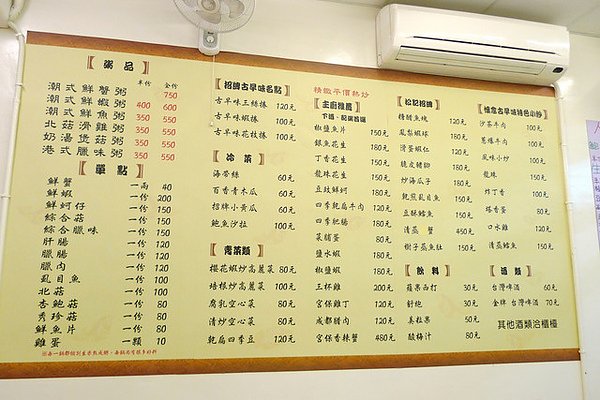 【粥品】 半份 全份
潮式鮮蟹粥 750
潮式鮮蝦粥 400 600
潮式鮮魚粥 350 550
北菇滑雞粥 350 550
奶湯菇菇粥 350 550
港式臘味粥 350 550
【單點】
鮮蟹 一兩 40
鮮蝦 一份 200
鮮蚵仔 一份 150
綜合菇 一份 150
綜合臘味 一份 150
肝腸 一份 120
臘腸 一份 120
臘肉 一份 120
虱目魚 一份 100
北菇 一份 100
杏鮑菇 一份 80
秀珍菇 一份 80
鮮魚片 一份 80
雞蛋 一顆 10
【招牌古早味名點】
古早味三絲捲 120元
古早味蝦捲 100元
古早味花枝捲 100元
【冷菜】
海帶絲 60元
百香青木瓜 60元
招牌小黃瓜 60元
鮑魚沙拉 100元
【青菜類】
櫻花蝦炒高麗菜 80元
培根炒高麗菜 100元
腐乳空心菜 80元
清炒空心菜 80元
乾扁四季豆 120元
精緻平價熱炒
【主廚推薦】
下酒、配粥首選
椒鹽魚片 150元
銀魚花生 180元
丁香花生 150元
龍珠花生 150元
豆豉鮮蚵 180元
四季乾扁牛肉 120元
四季肥腸 180元
菜脯蛋 80元
鹽水蝦 180元
椒鹽蝦 180元
三杯雞 200元
宮保雞丁 120元
成都臘肉 120元
宮保香辣蟹 480元
【松記招牌】
精燉魚塊 120元
鳳梨蝦球 180元
脆皮豬腳 180元
炒海瓜子 180元
乾煎虱目魚 150元
豆酥鱈魚 150元
清蒸蟹 450元
樹子蒸魚肚 150元
【飲料】
蘋果西打 30元
舒跑 30元
美粒果 50元
酸梅汁 80元
【懷念古早味特色小炒】
沙茶牛肉 100元
蔥爆牛肉 100元
風味小炒 100元
龍珠 150元
炸丁香 100元
塔香蛋 80元
口水雞 120元
清蒸鱈魚 150元
【酒類】
台灣啤酒 60元
金牌台灣啤酒 70元
其他酒類洽櫃檯